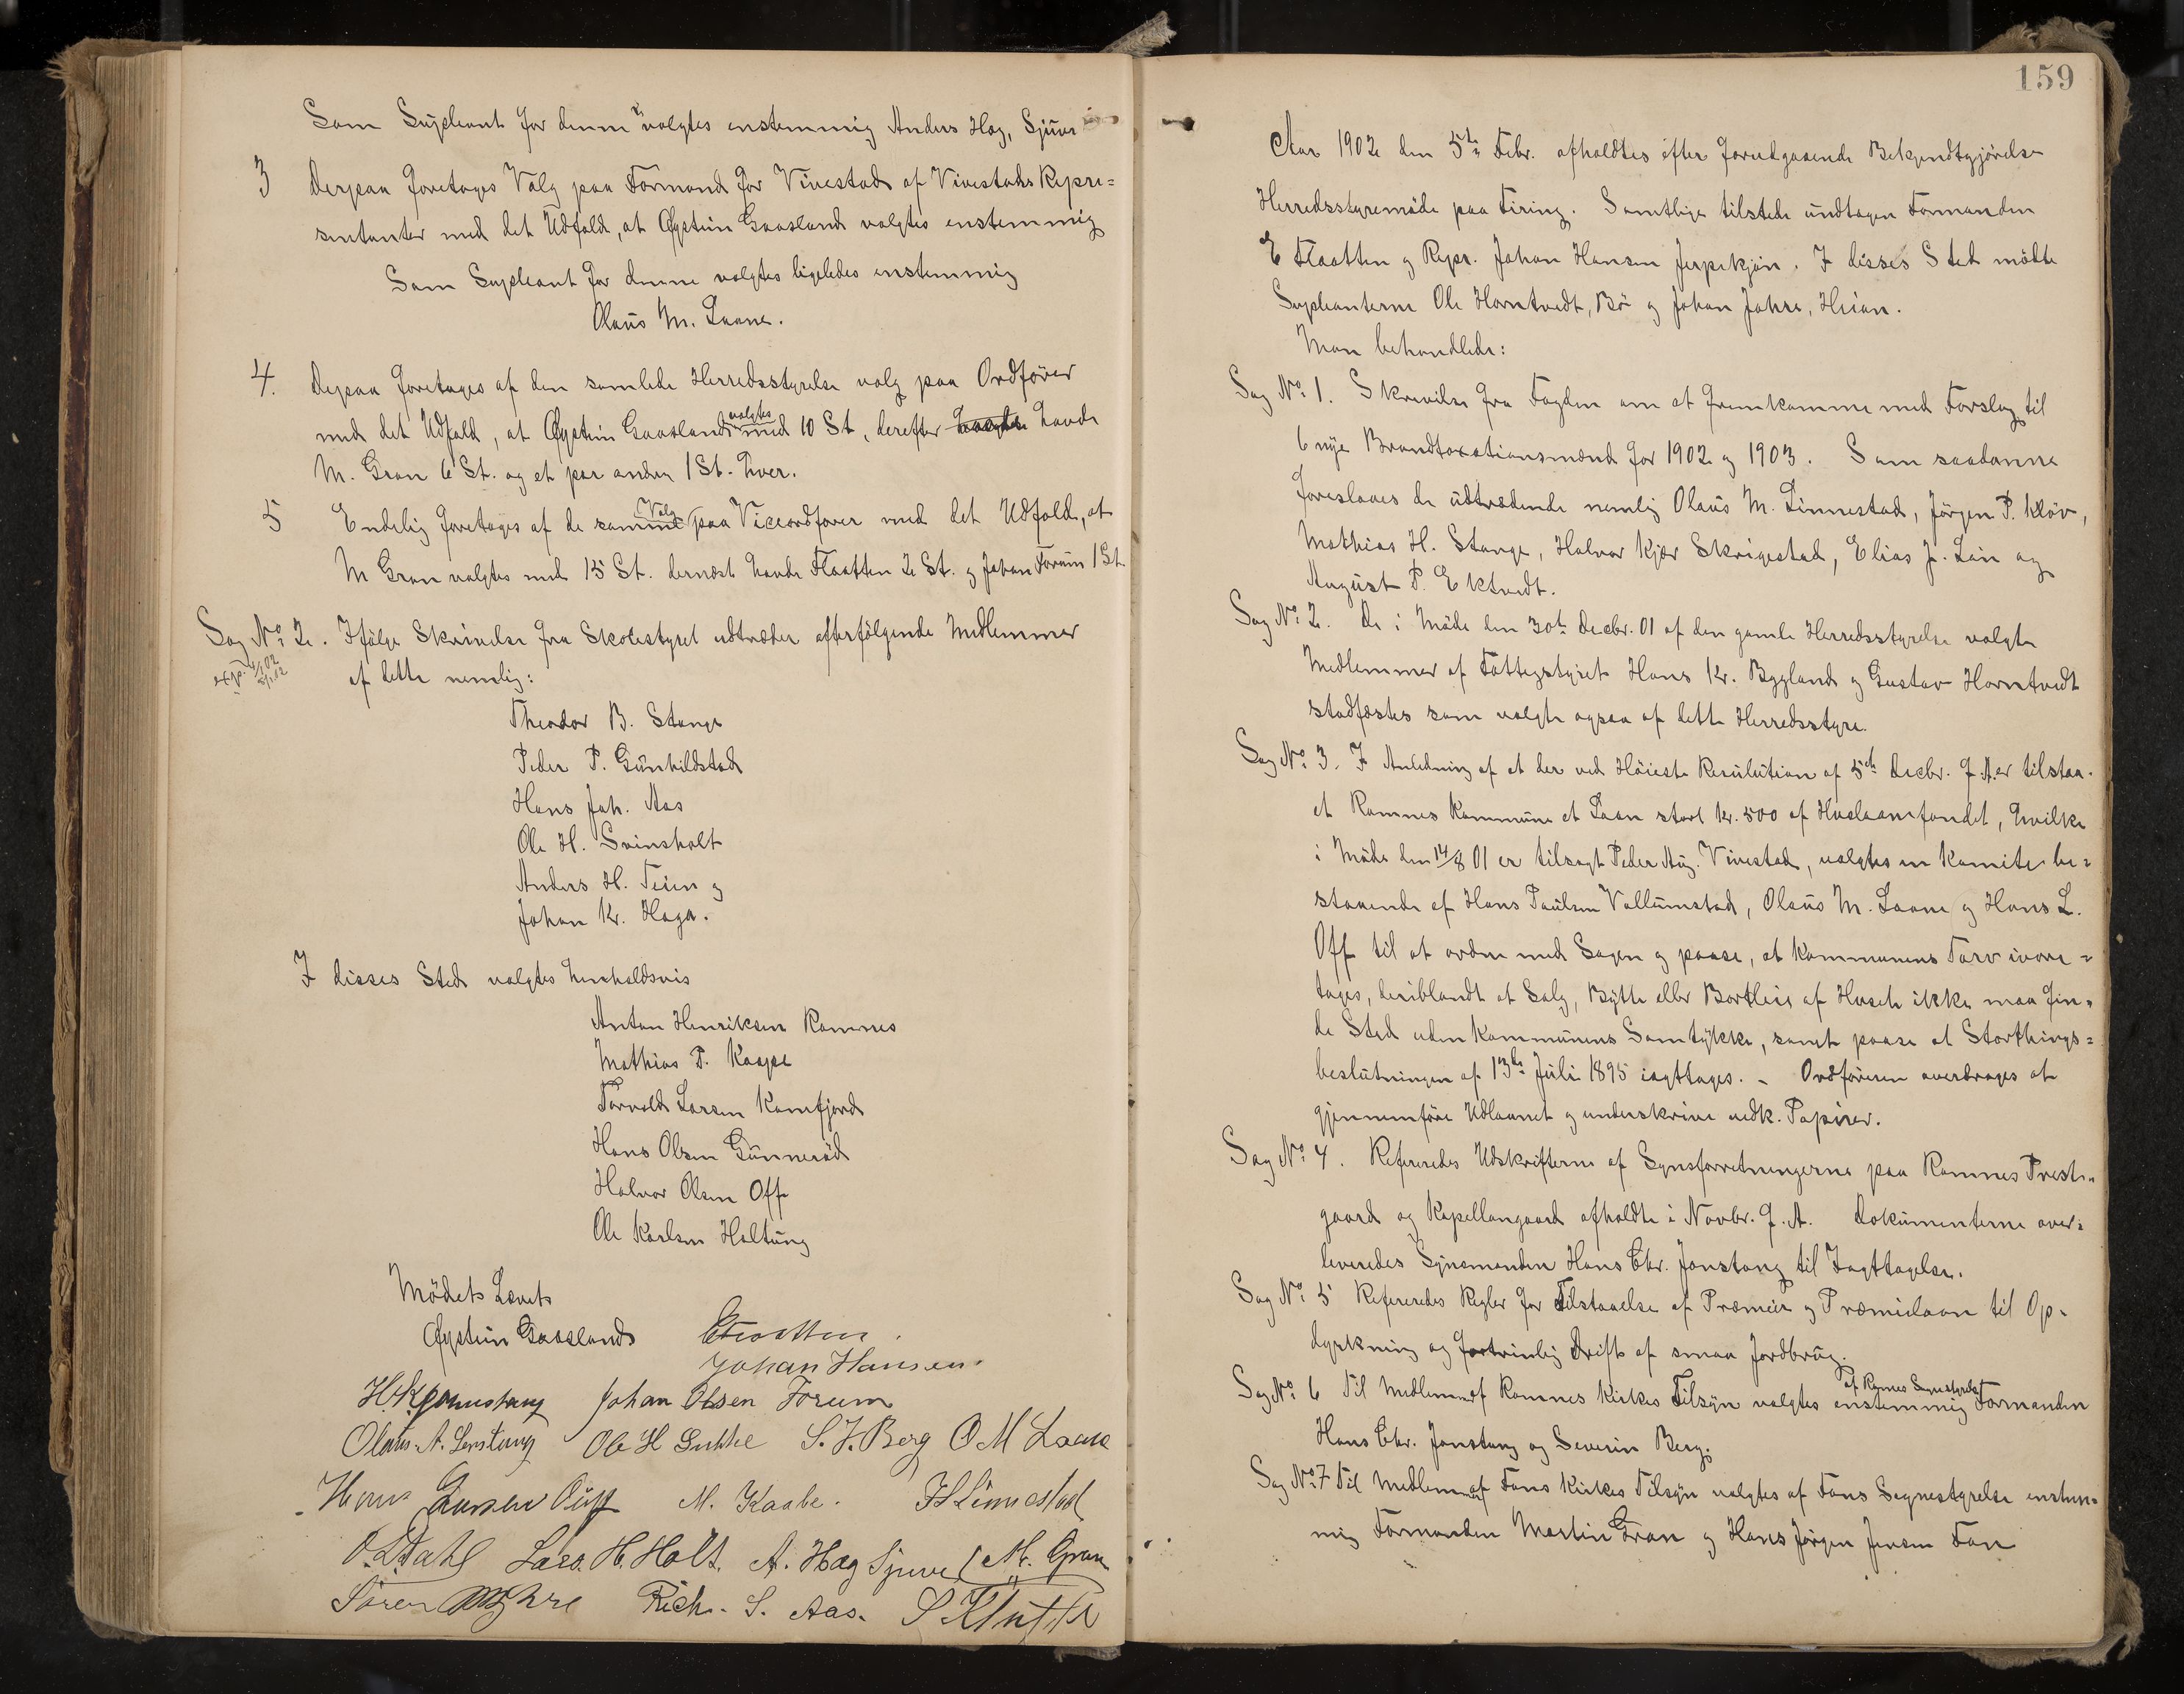 Som Supleant for denne valgtes enstemmig Anders Hag, Sjuve
3 Derpaa foretages Valg paa Formand for Vivestad af Vivestads Repræ=
sentanter med det Udfald, at Øystein Gaasland valgtes enstemmig
Som Supleant for denne valgtes ligeledes enstemmig
Olaus M. Laane.
4. Depaa foretages af den samlede Herredsstyrelse valg paa Ordfører
med det Udfald, at Øystein Gaasland valgtes med 10 St, derefter havde
M. Gran 6 St. og et par andre 1 St. hver.
5 Endelig foretages af de samme Valg paa Viceordfører med det Udfald, at
M Gran valgtes med 15 St. dernæst havde Flaatten 2 St. og Johan Forum 1 St.
Sag No. 2. Ifølge Skrivelse fra Skolestyret udtræder efterfølgende Medlemmer
af dette nemlig:
Theodor B. Stange
Peder P. Gunhildstad
Hans Joh. Aas
Ole H. Svinsholt
Anders H. Teien og
Johan Kr. Haga.
I disses Sted valgtes henholdsvis
Anton Henriksen Ramnes
Mathias P. Kaape
Torvald Larsen Kamfjord
Hans Olsen Gunnerød
Halvor Olsen Off
Ole Karlsen Haltung
Mødet hævet
Øystein Gaasland EFlaatten.
Johan Hansen.
H. K. Jonnstang Johan Olsen Forum
Olaus A. Linstang Ole H S. J. Berg O M Laane
Hans Larsen Off M. Kaabe. H Linnestad
O. Dahl Lars. H. Holt. A. Hag Sjuve M. Gran
Søren Myhre Rich. S. Aas. S Klutke
159
Aar 1902 den 5te Febr. afholdtes efter forudgaaende Bekjendtgjørelse
Herredsstyremøde paa Firing. Samtlige tilstede undtagen Formanden
E Flaatten og Repr. Johan Hansen Jerpekjøn. I disses Sted mødte
Supleanterne Ole Horntvedt, Bø og Johan Jahre, Heian.
Man behandlede:
Sag No. 1. Skrivelse fra Fogden om at fremkomme med Forslag til
6 nye Brandtaxationsmænd for 1902 og 1903. Som saadanne
foreslaaes de udtrædende nemlig Olaus M. Linnestad, Jörgen P. Kløv,
Mathias H. Stange, Halvor Kjær Skrigestad, Elias J. Lian og
August P. Ektvedt.
Sag No. 2. De i Møde den 30te Decbr. 01 af den gamle Herredsstyrelse valgte
Medlemmer af Fattigstyret Hans Kr. Bygland og Gustav Horntvedt
stadfæstes som valgte ogsaa af dette Herredsstyre.
Sag No. 3. I Anledning af et der ved Høieste Resulution af 5te Decbr. f. A. er tilstaa-
et Ramnes Kommune et Laan stort Kr. 500 af Huslaanfondet, hvilke
i Møde den 14/8 01 er tilsagt Peder Aug. Vivestad, valgtes en Komite be=
staaende af Hans Paulsen Vallumstad, Olaus M. Laane og Hans L.
Off til at ordne med Sagen og paase, at Kommunens Tarv ivare=
tages, deriblandt at Salg, Bytte eller Bortleie af Huset ikke maa fin-
de Sted uden Kommunens Samtykke, samt paase at Storthings=
beslutningen af 13de Juli 1895 iagttages. - Ordføreren overdrages at
gjennemføre Udlaanet og underskrive vedk. Papirer.
Sag No. 4. Refereredes Udskrifterne af Synsforretningerne paa Ramnes Preste-
gaard og Kapellangaard afholdte i Novbr. f. A. Dokumenterne over=
leveredes Synsmanden Hans Chr. Jonstang til Iagttagelse.
Sag No. 5 Refereredes Regler for Tilstaaelse af Præmier og Præmielaan til Op-
dyrkning og fortrinlig Drift af smaa Jordbrug.
Sag No. 6 Til Medlem af Ramnes Kirkes Tilsyn valgtes af Ramnes Sognestyrelse enstemmig Formanden
Hans Chr. Jonstang og Severin Berg.
Sag No. 7 Til Medlem af Fons Kirkes Tilsyn valgtes af Fons Sognestyrelse enstem=
mig Formanden Martin Gran og Hans Jørgen Jensen Fon